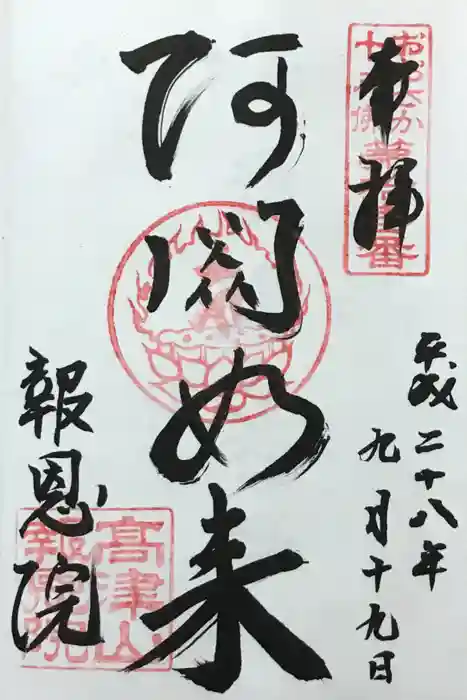 奉拝
おおさか
十三佛
平成二十八年
九月十九日
阿閦如来
報恩院
高津山
報恩院